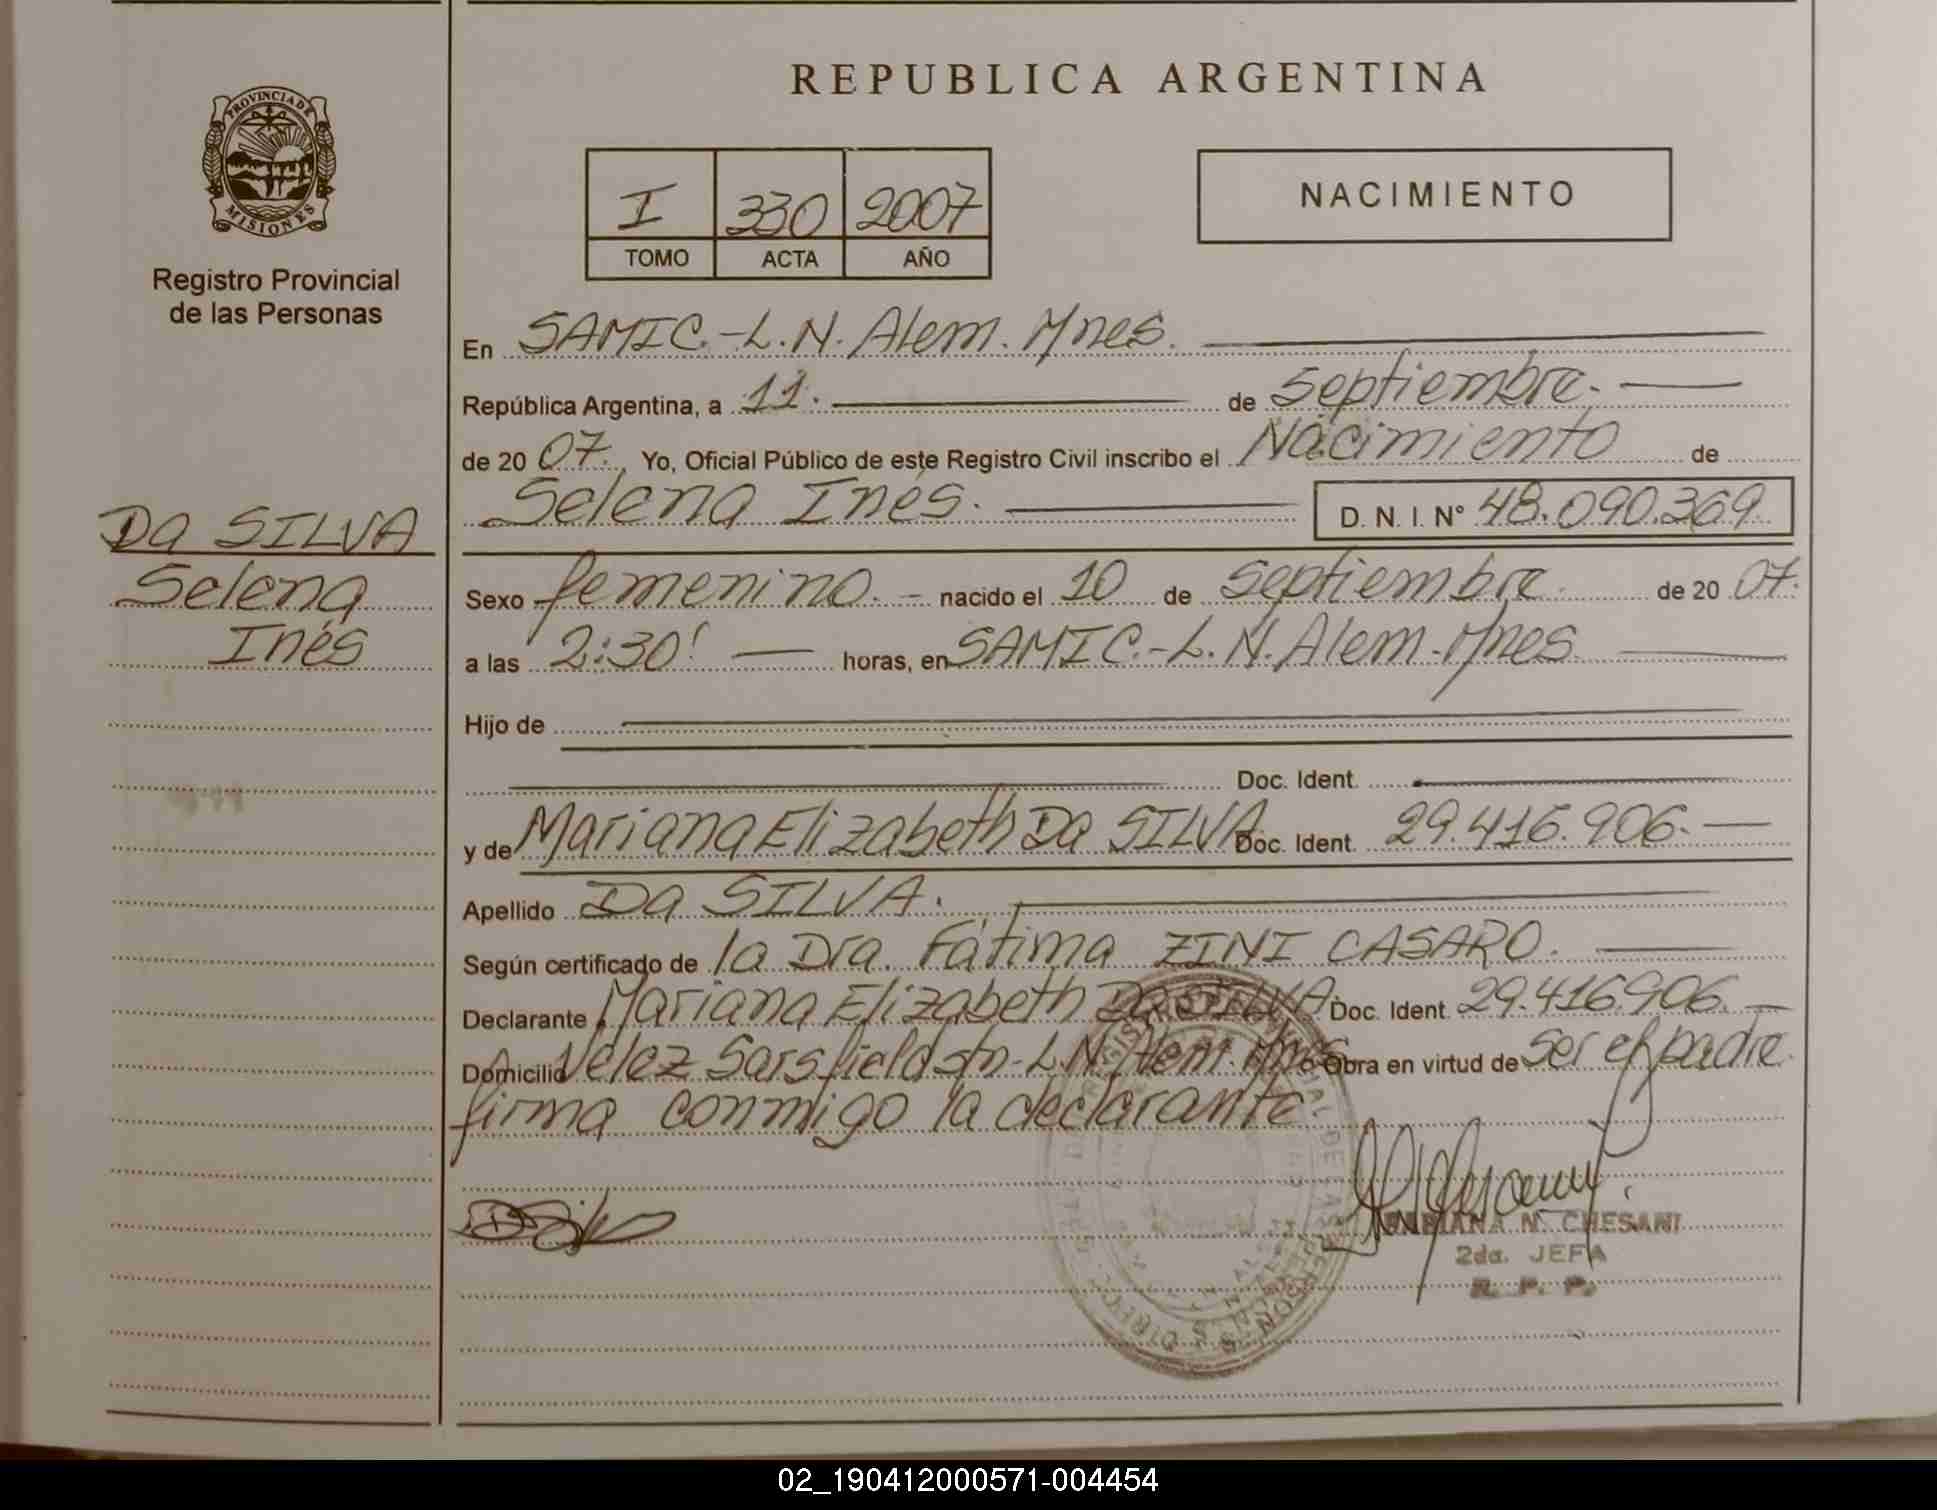 PROVINCIA DE
MISIONES
Registro Provincial
de las Personas
Da SILVA
Selena
Inés
REPUBLICA ARGENTINA
I 330 2007
TOMO ACTA AÑO
NACIMIENTO
En SAMIC.-L.N. Alem. Mnes.
República Argentina, a 11. de septiembre.
de 20 07. Yo, Oficial Público de este Registro Civil inscribo el Nacimiento de
Selena Inés. D. N. I. N° 48.090.369
Sexo femenino. nacido el 10 de septiembre. de 20 07.
a las 2:30' horas, en SAMIC.-L.N. Alem. Mnes
Hijo de
Doc. Ident.
y de Mariana Elizabeth Da SILVA Doc. Ident. 29.416.906.
Apellido Da SILVA.
Según certificado de la Dra. Fátima ZINI CASARO.
Declarante Mariana Elizabeth Da SILVA. Doc. Ident. 29.416.906.
Domicilio Velez Sarsfield s/n-L.N. Alem. Mnes Obra en virtud de ser el padre
firma conmigo la declarante
N. CHESANI
2da. JEFA
R. P. P.
02_190412000571-004454